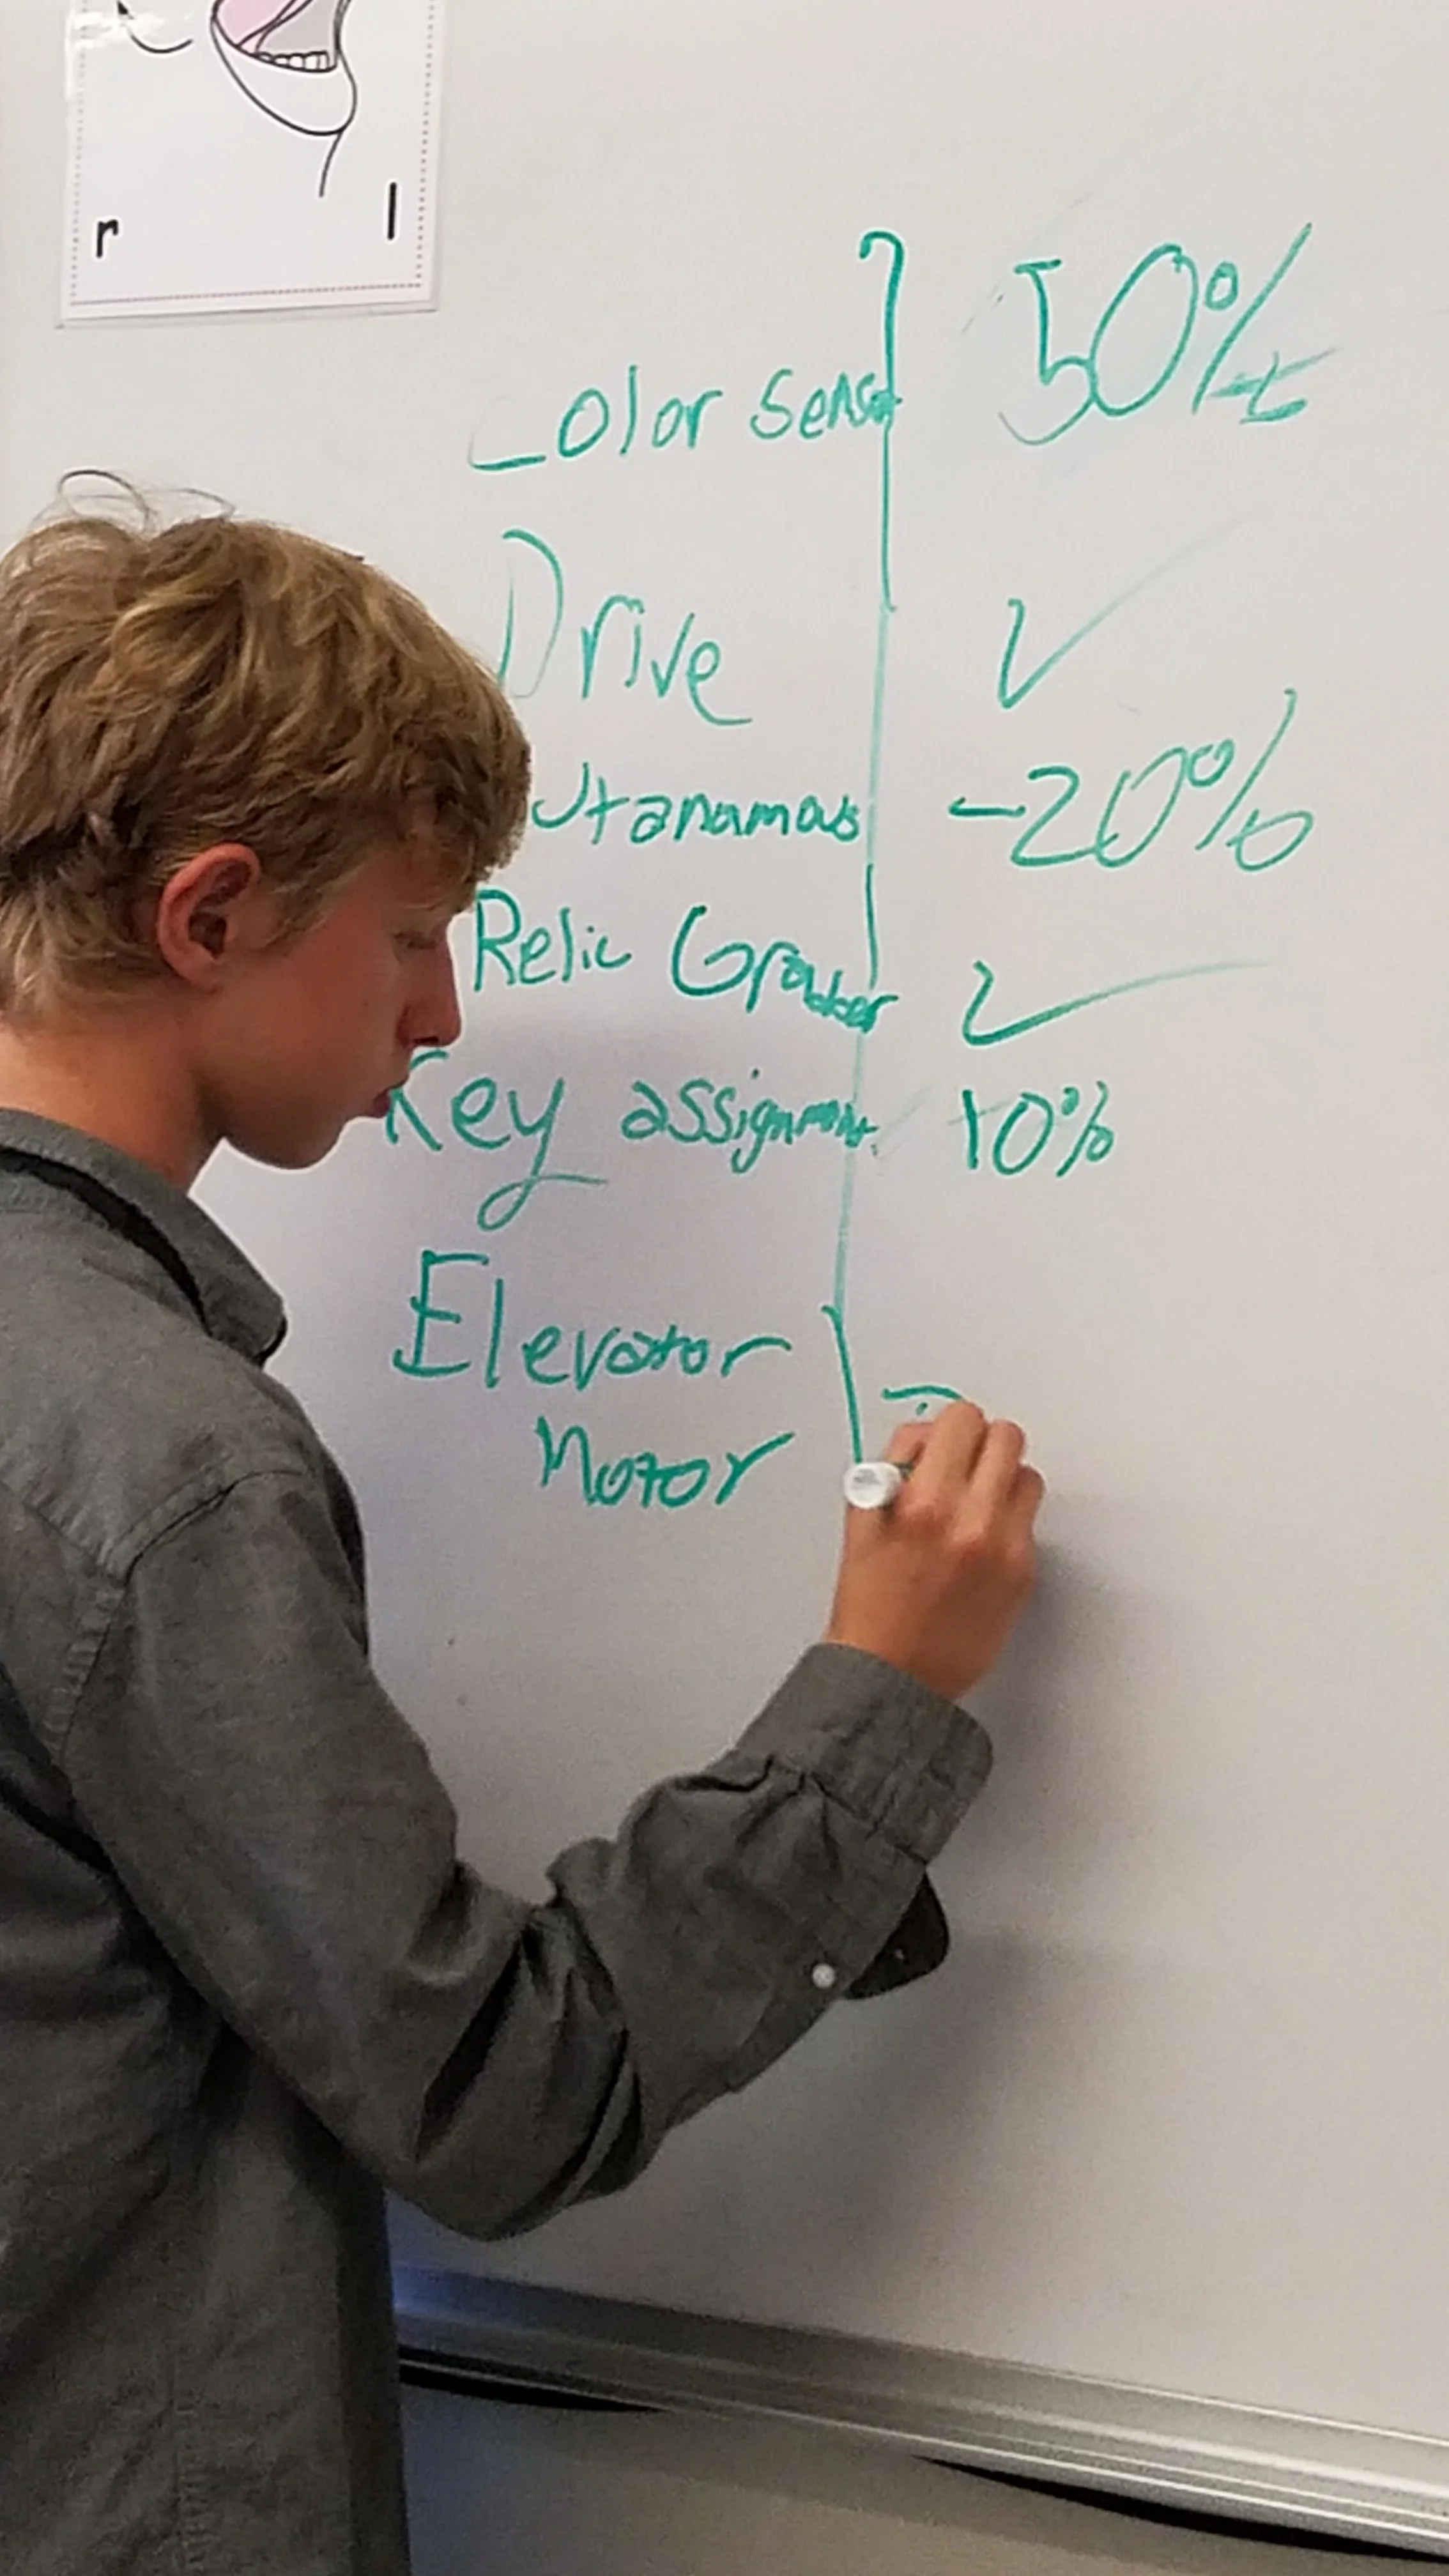 r l
Color Sensor 50%
Drive ✓
utanamous -20%
Relic Grabber ✓
Key assignment. 10%
Elevator
Motor